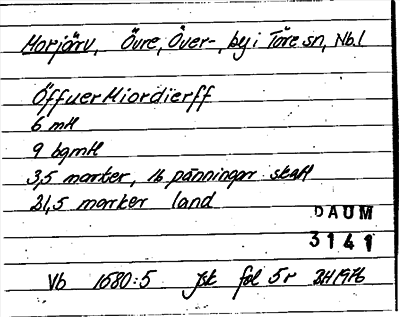 Morjärv, Övre, Över-, by i Töre sn, Nb.l
Öffuer Miordierff
6 mtl
9 bgmtl
3,5 marker, 16 pänningar skatt
21,5 marker land
DAUM
3141
Vb 1680:5 jsk fol 5r BH 1976